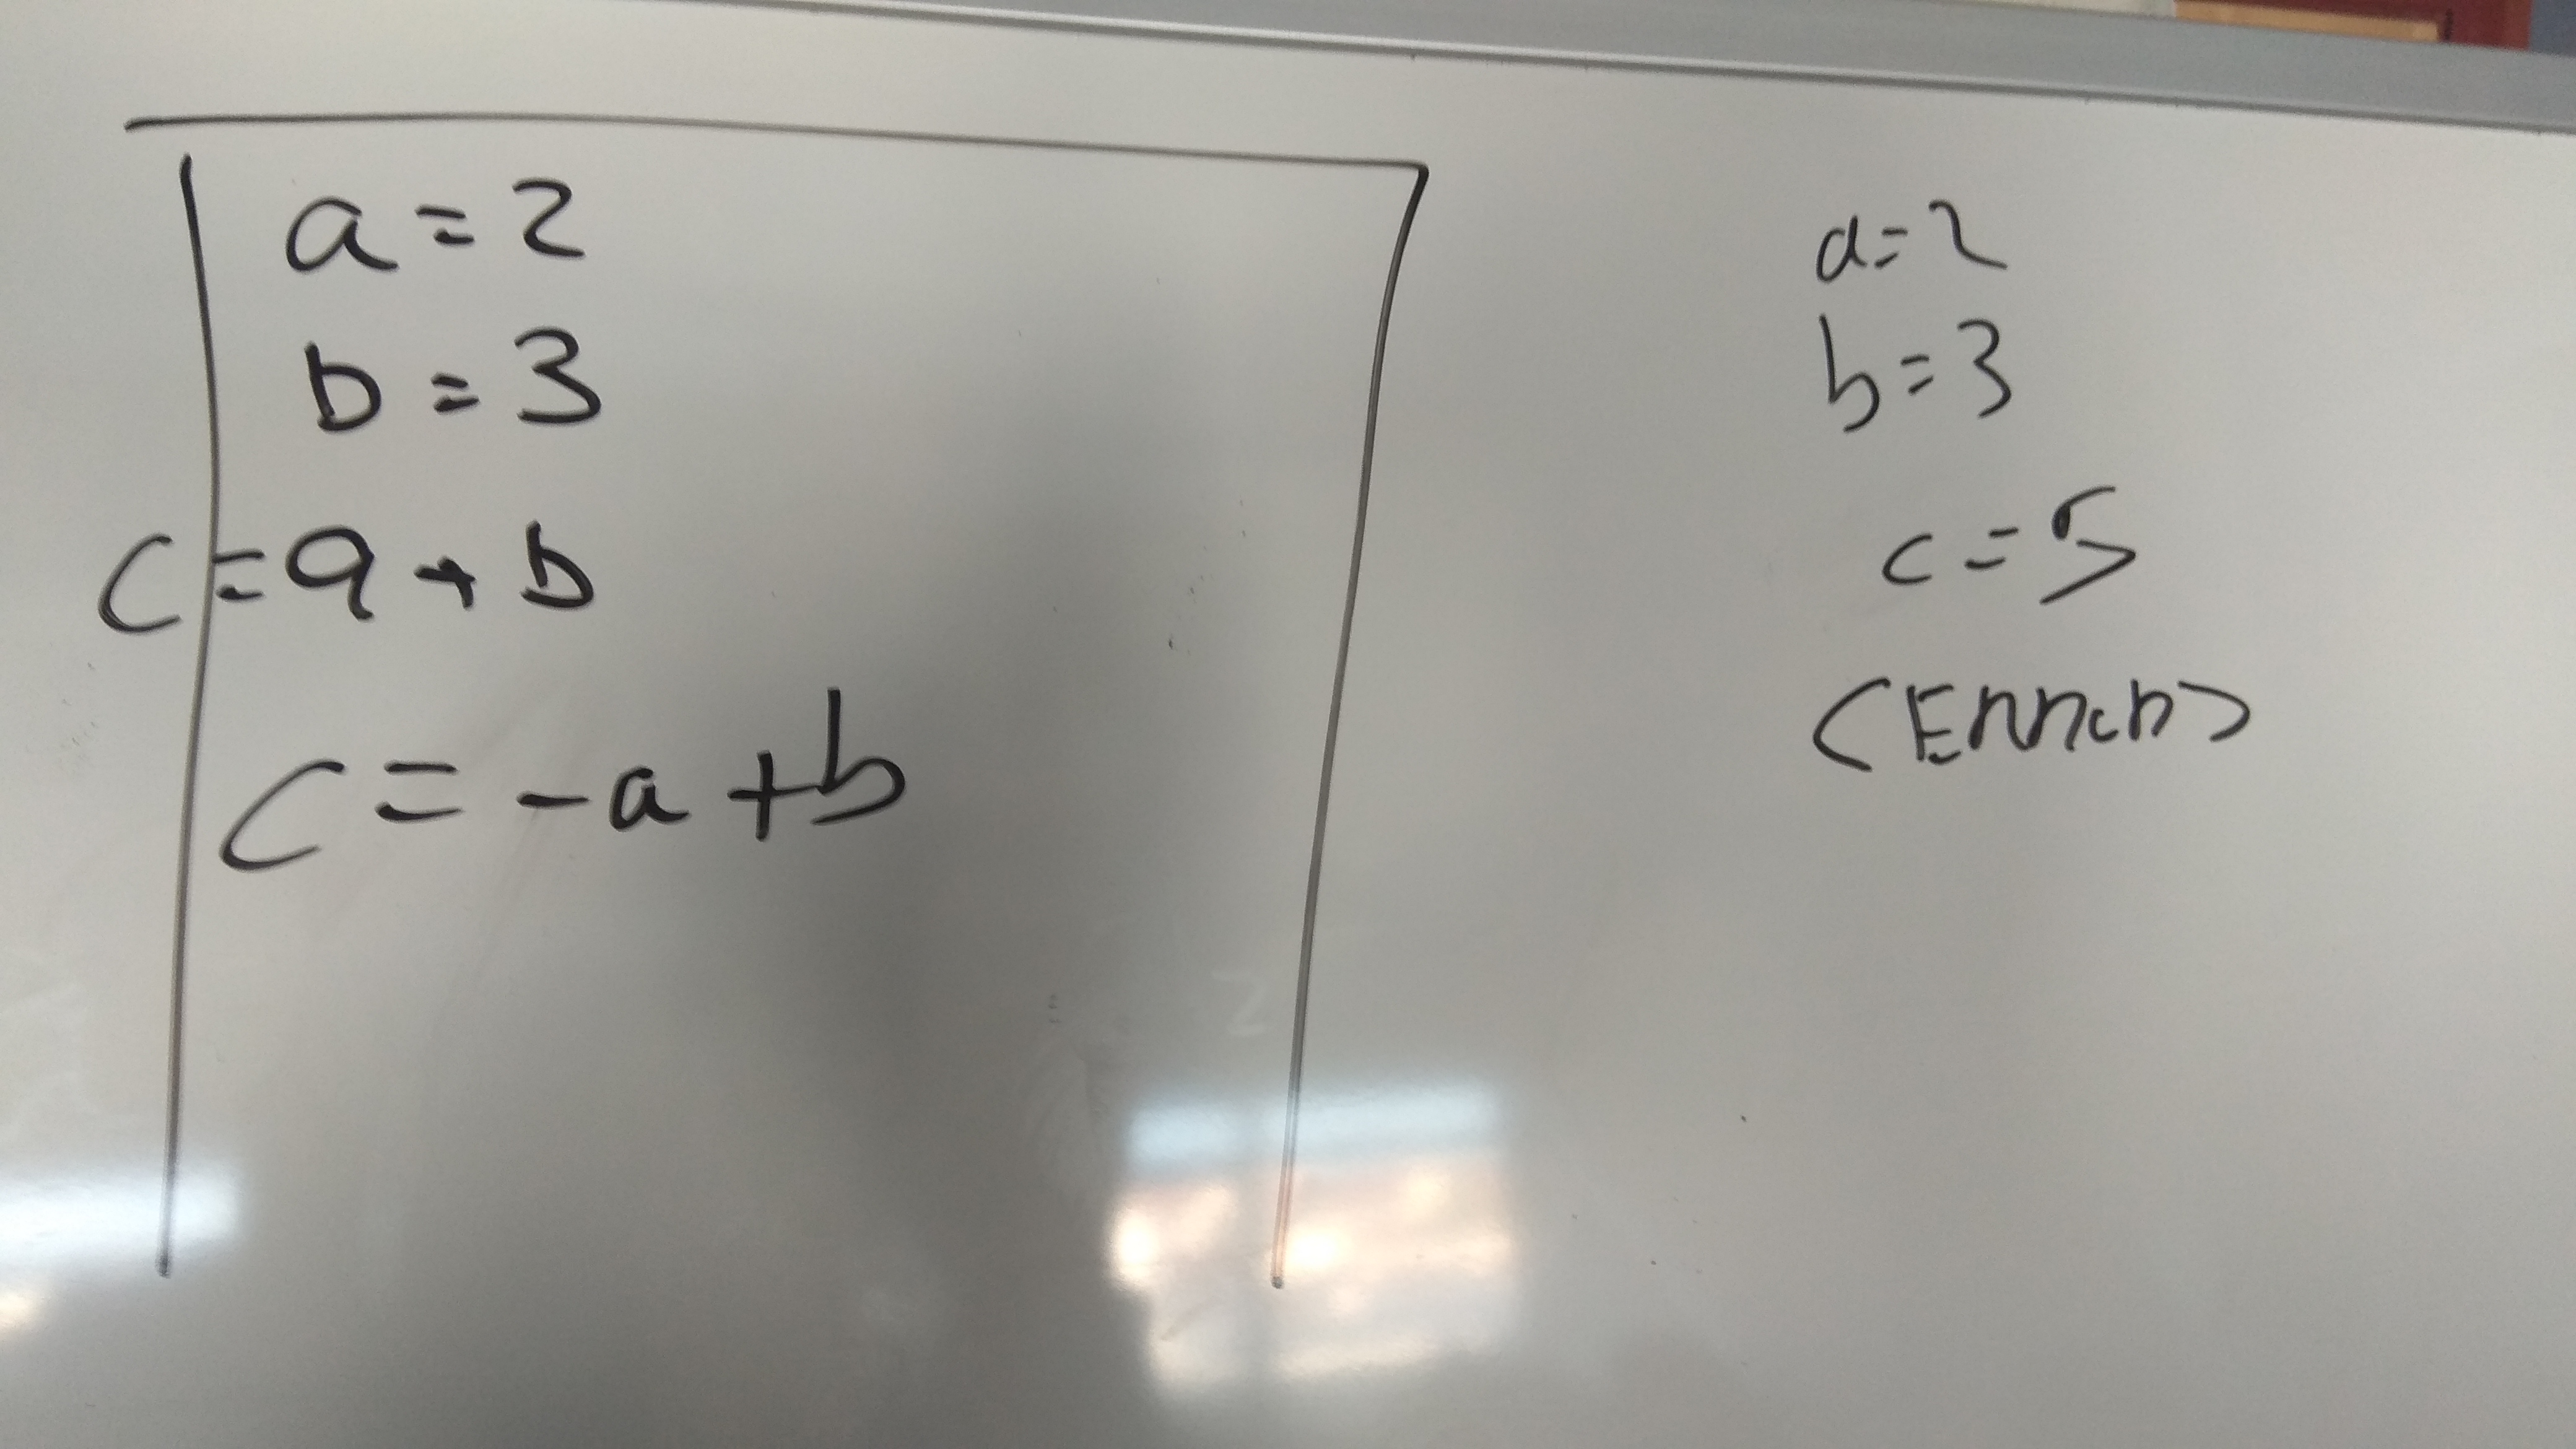 a = 2
b = 3
c = a + b
c = -a + b
a = 2
b = 3
c = 5
(Error)